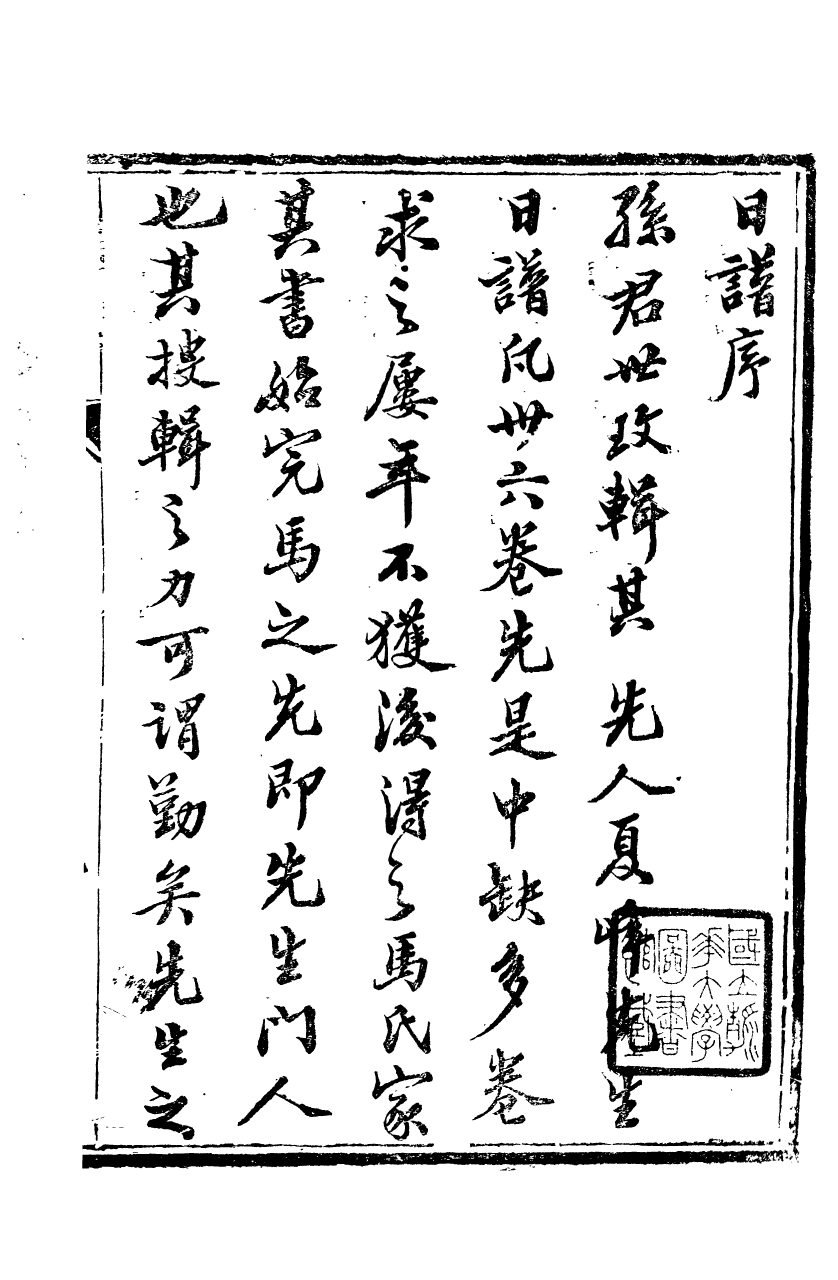 日譜序
孫君世玫輯其　先人夏峰先生
日譜凡卅六卷先是中缺多卷
求之屢年不獲後得之馬氏家
其書始完馬之先即先生門人
也其搜輯之力可謂勤矣先生之
國立清華大學圖書館藏